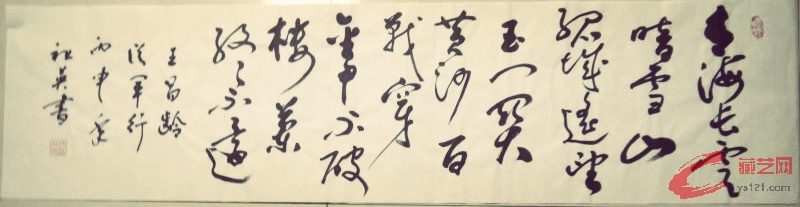 青海长雲
暗雪山
孤城遥望
玉门关
黄沙百
戰穿
金甲不破
楼蘭
终不還
王昌龄
從軍行
丙申年
英書
藏艺网
ys121.com